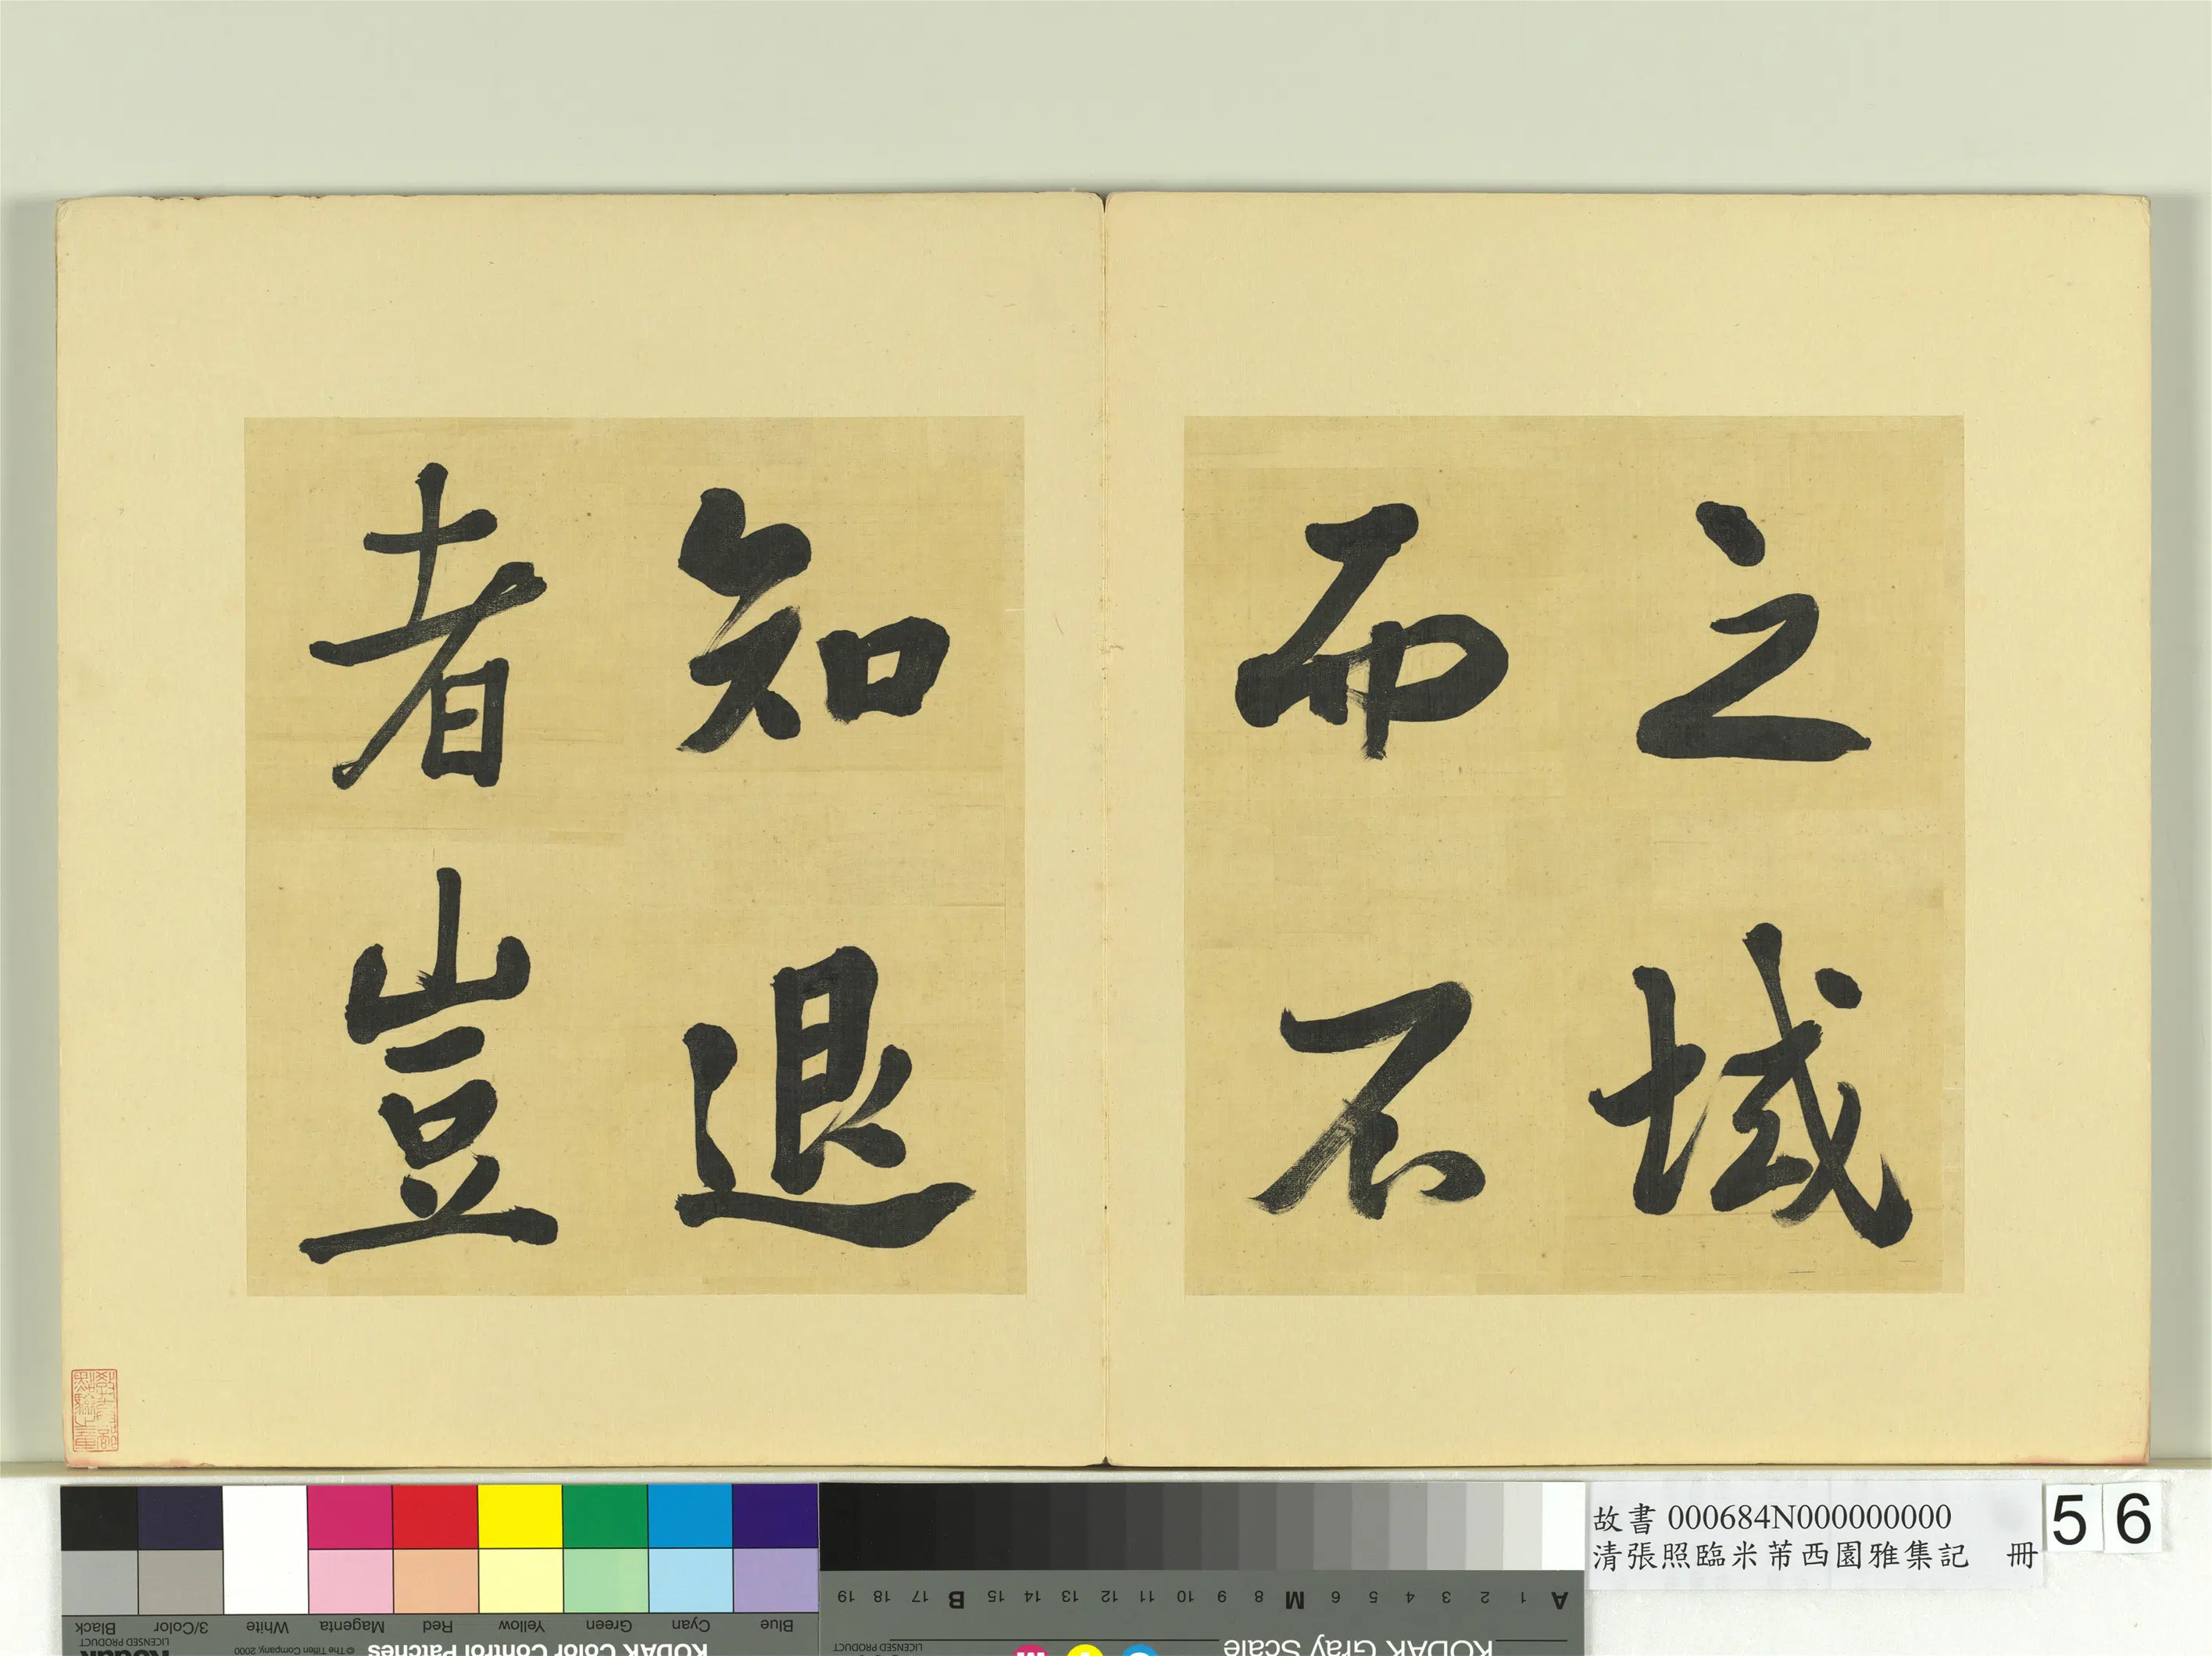 之域
而不
知退
者豈
故書 000684N000000000
清張照臨米芾西園雅集記 冊
5 6
Blue
Cyan
Green
Yellow
Red
Magenta
White
3/Color
Black
KODAK Color Control Patches
© The Tiffen Company, 2000
Kodak
LICENSED PRODUCT
KODAK Gray Scale
A 1 2 3 4 5 6 M 8 9 10 11 12 13 14 15 B 17 18 19
Kodak
LICENSED PRODUCT